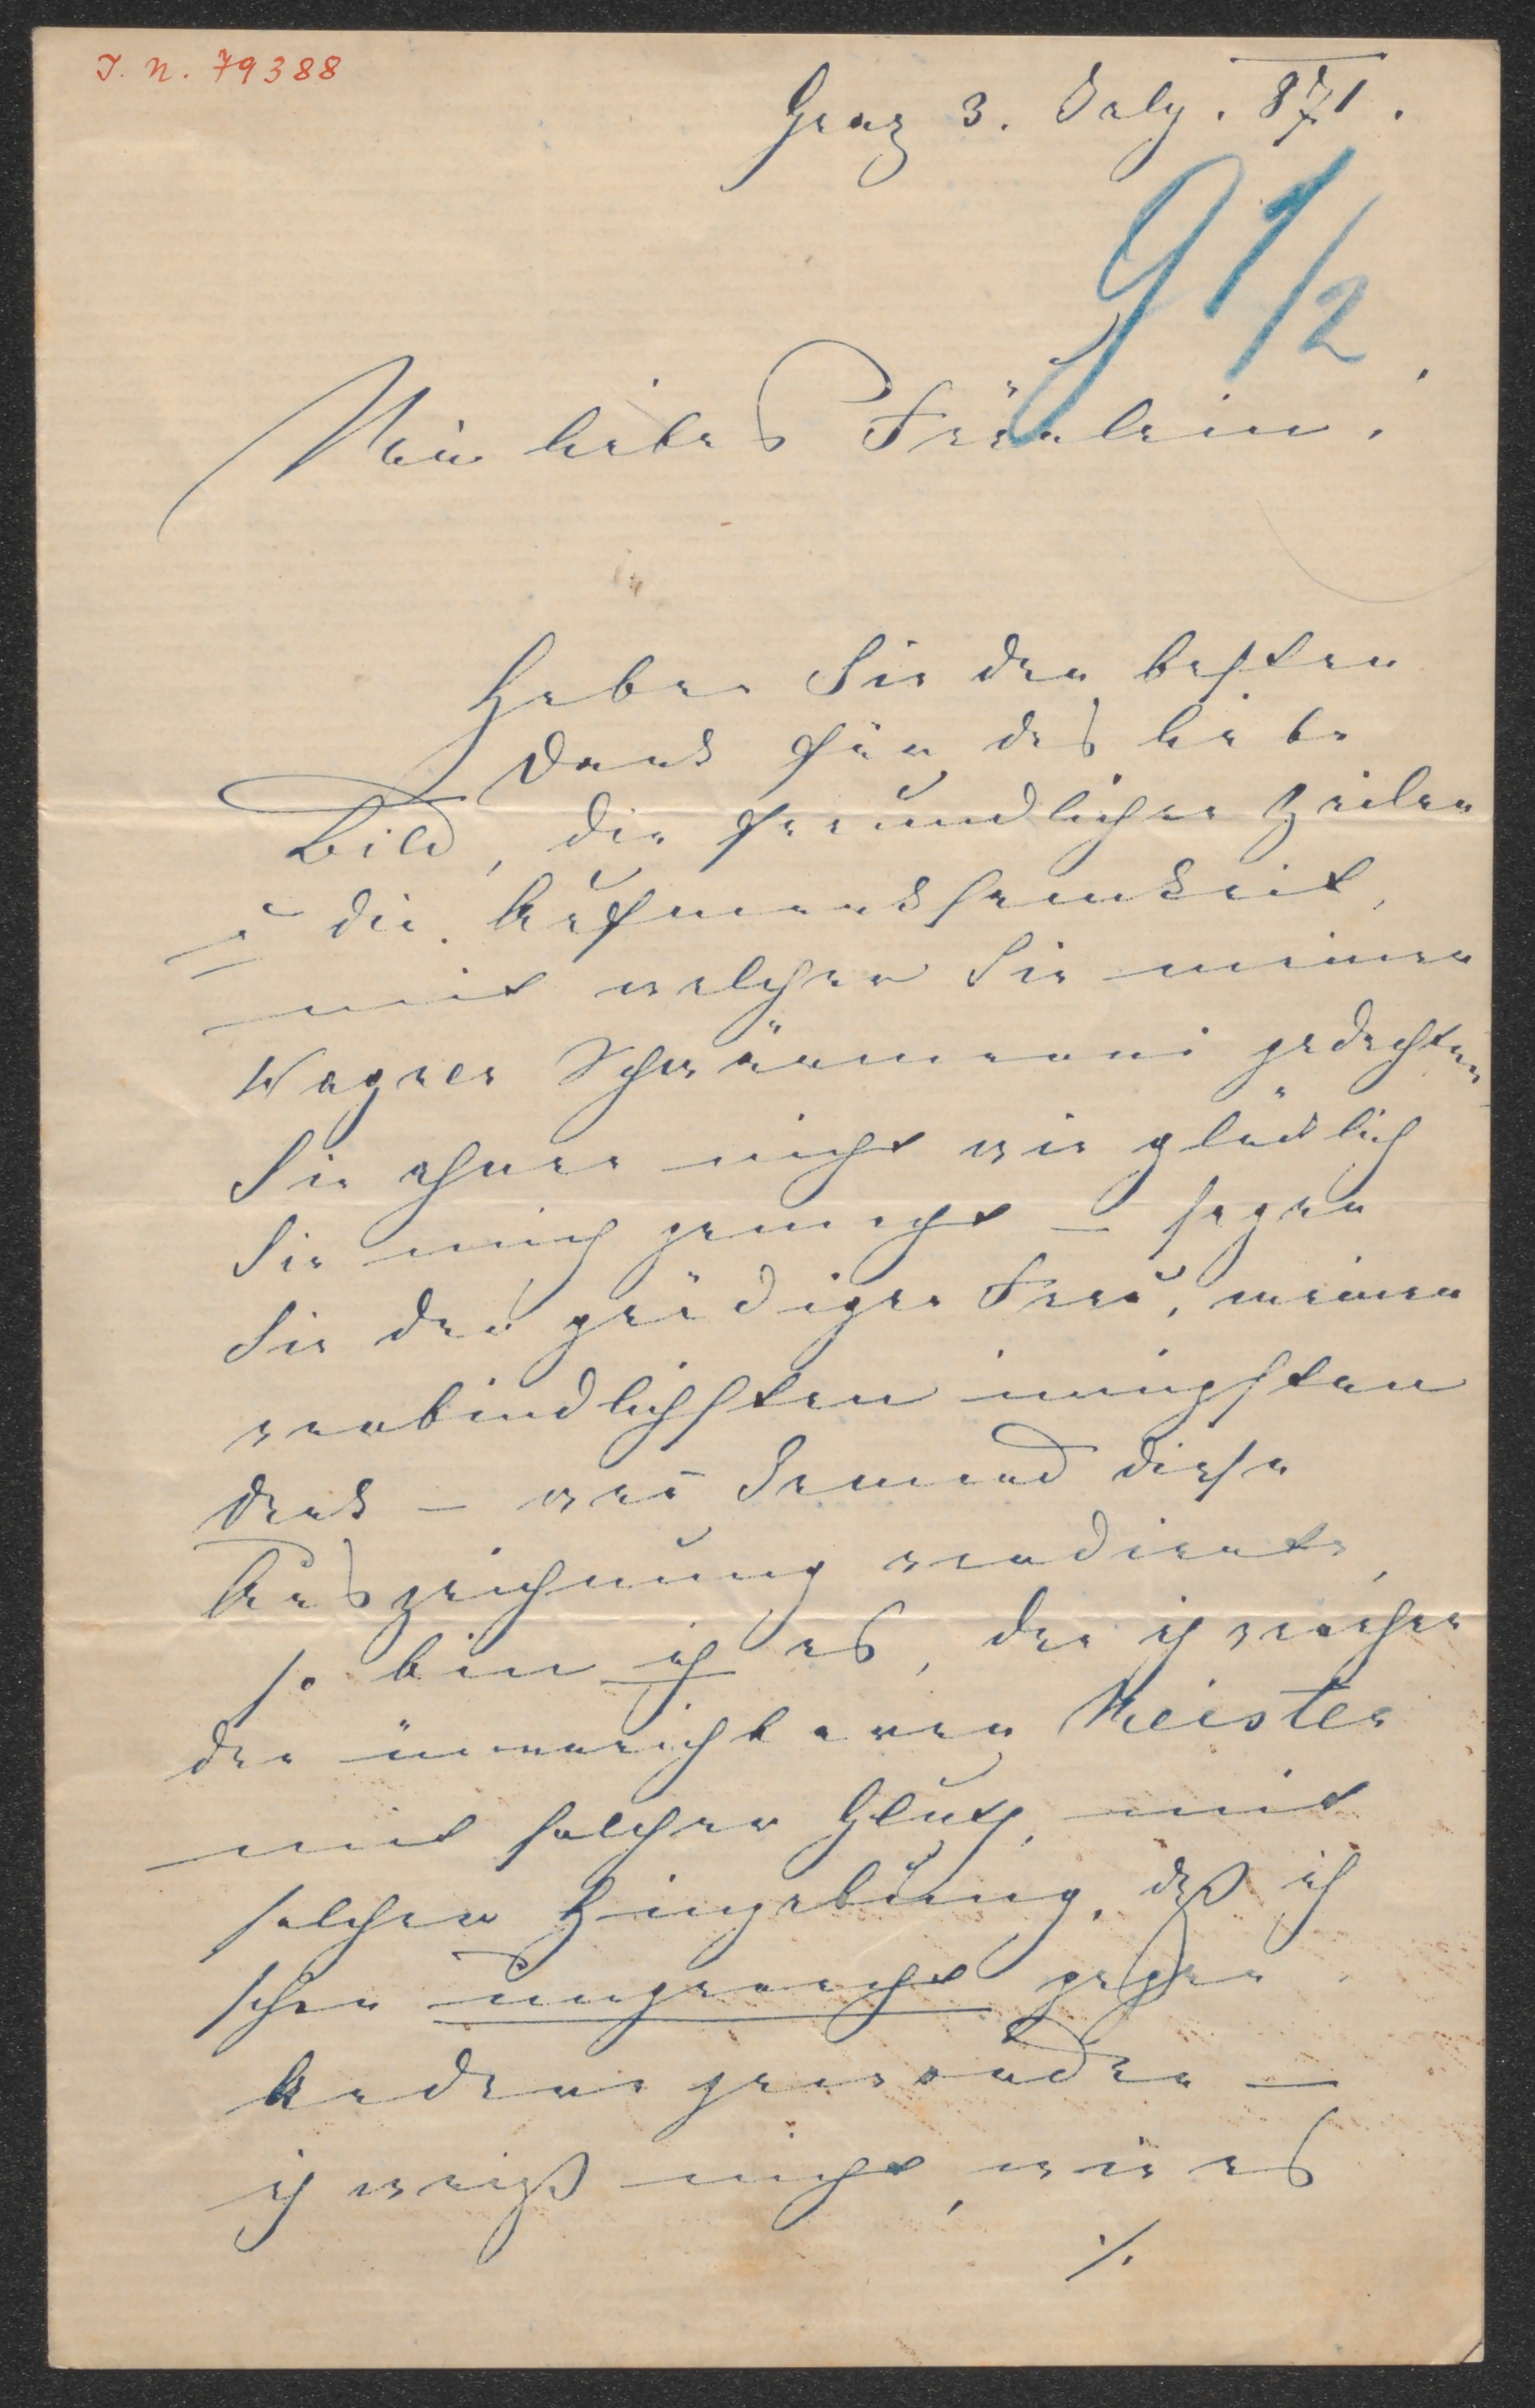 I. N. 79388
Graz 3. July. 871.
91/2
Mein liebes Fräulein!
Haben Sie den besten
Dank für das liebe
Bild, die freundlichen Zeilen
u die Aufmerksamkeit,
mit welcher Sie meiner
Wagner Schwärmerei gedachten
Sie ahnen nicht wie glücklich
Sie mich gemacht – sagen
Sie der gnädigen Frau, meinen
verbindlichsten innigsten
Dank – wenn Jemand diese
Auszeichnung verdiente,
so bin ich es, der ich verehre
den unerreichbaren Meister
mit solcher Gluth, mit
solcher Hingebung, daß ich
schon ungerecht gegen
Andere geworden –
ich weiß nicht, wie es
./.